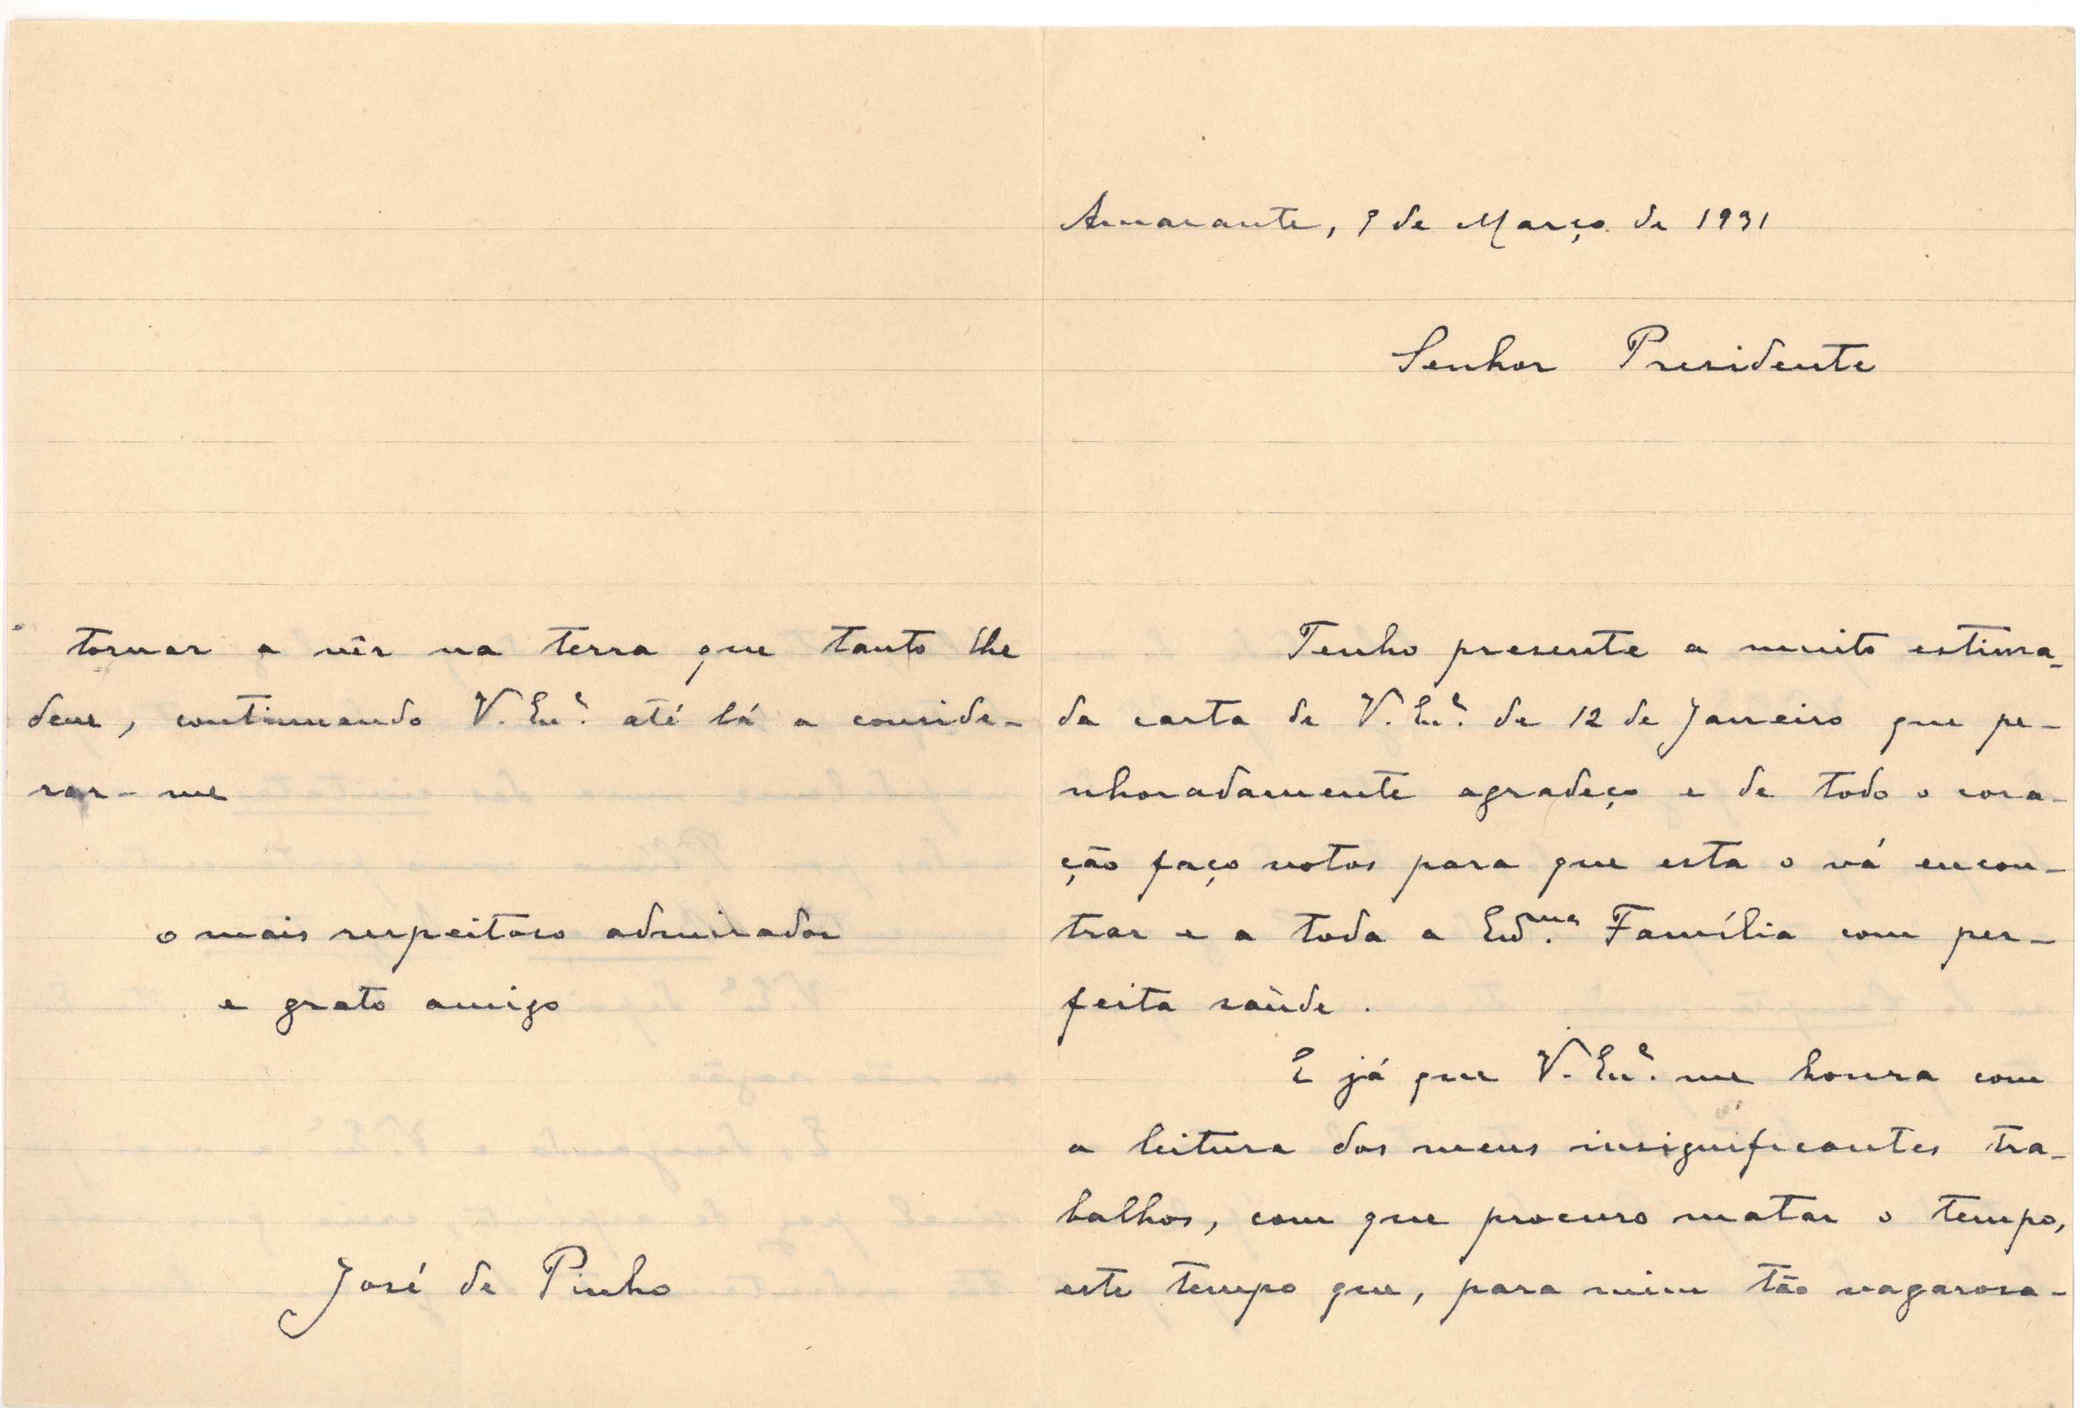 Amarante, 9 de Março de 1931
Senhor Presidente
Tenho presente a muito estima-
da carta de V. Ex.ª de 12 de Janeiro que pe-
nhoradamente agradeço e de todo o cora-
ção faço votos para que esta o vá encon-
trar e a toda a Ex.ma Família com per-
feita saùde.
E já que V. Ex.ª me honra com
a leitura dos meus insignificantes tra-
balhos, com que procuro matar o tempo,
este tempo que, para mim tão vagarosa-
tornar a vêr na terra que tanto lhe
deve, continuando V. Ex.ª até lá a conside-
rar-me
o mais respeitoso admirador
e grato amigo
José de Pinho